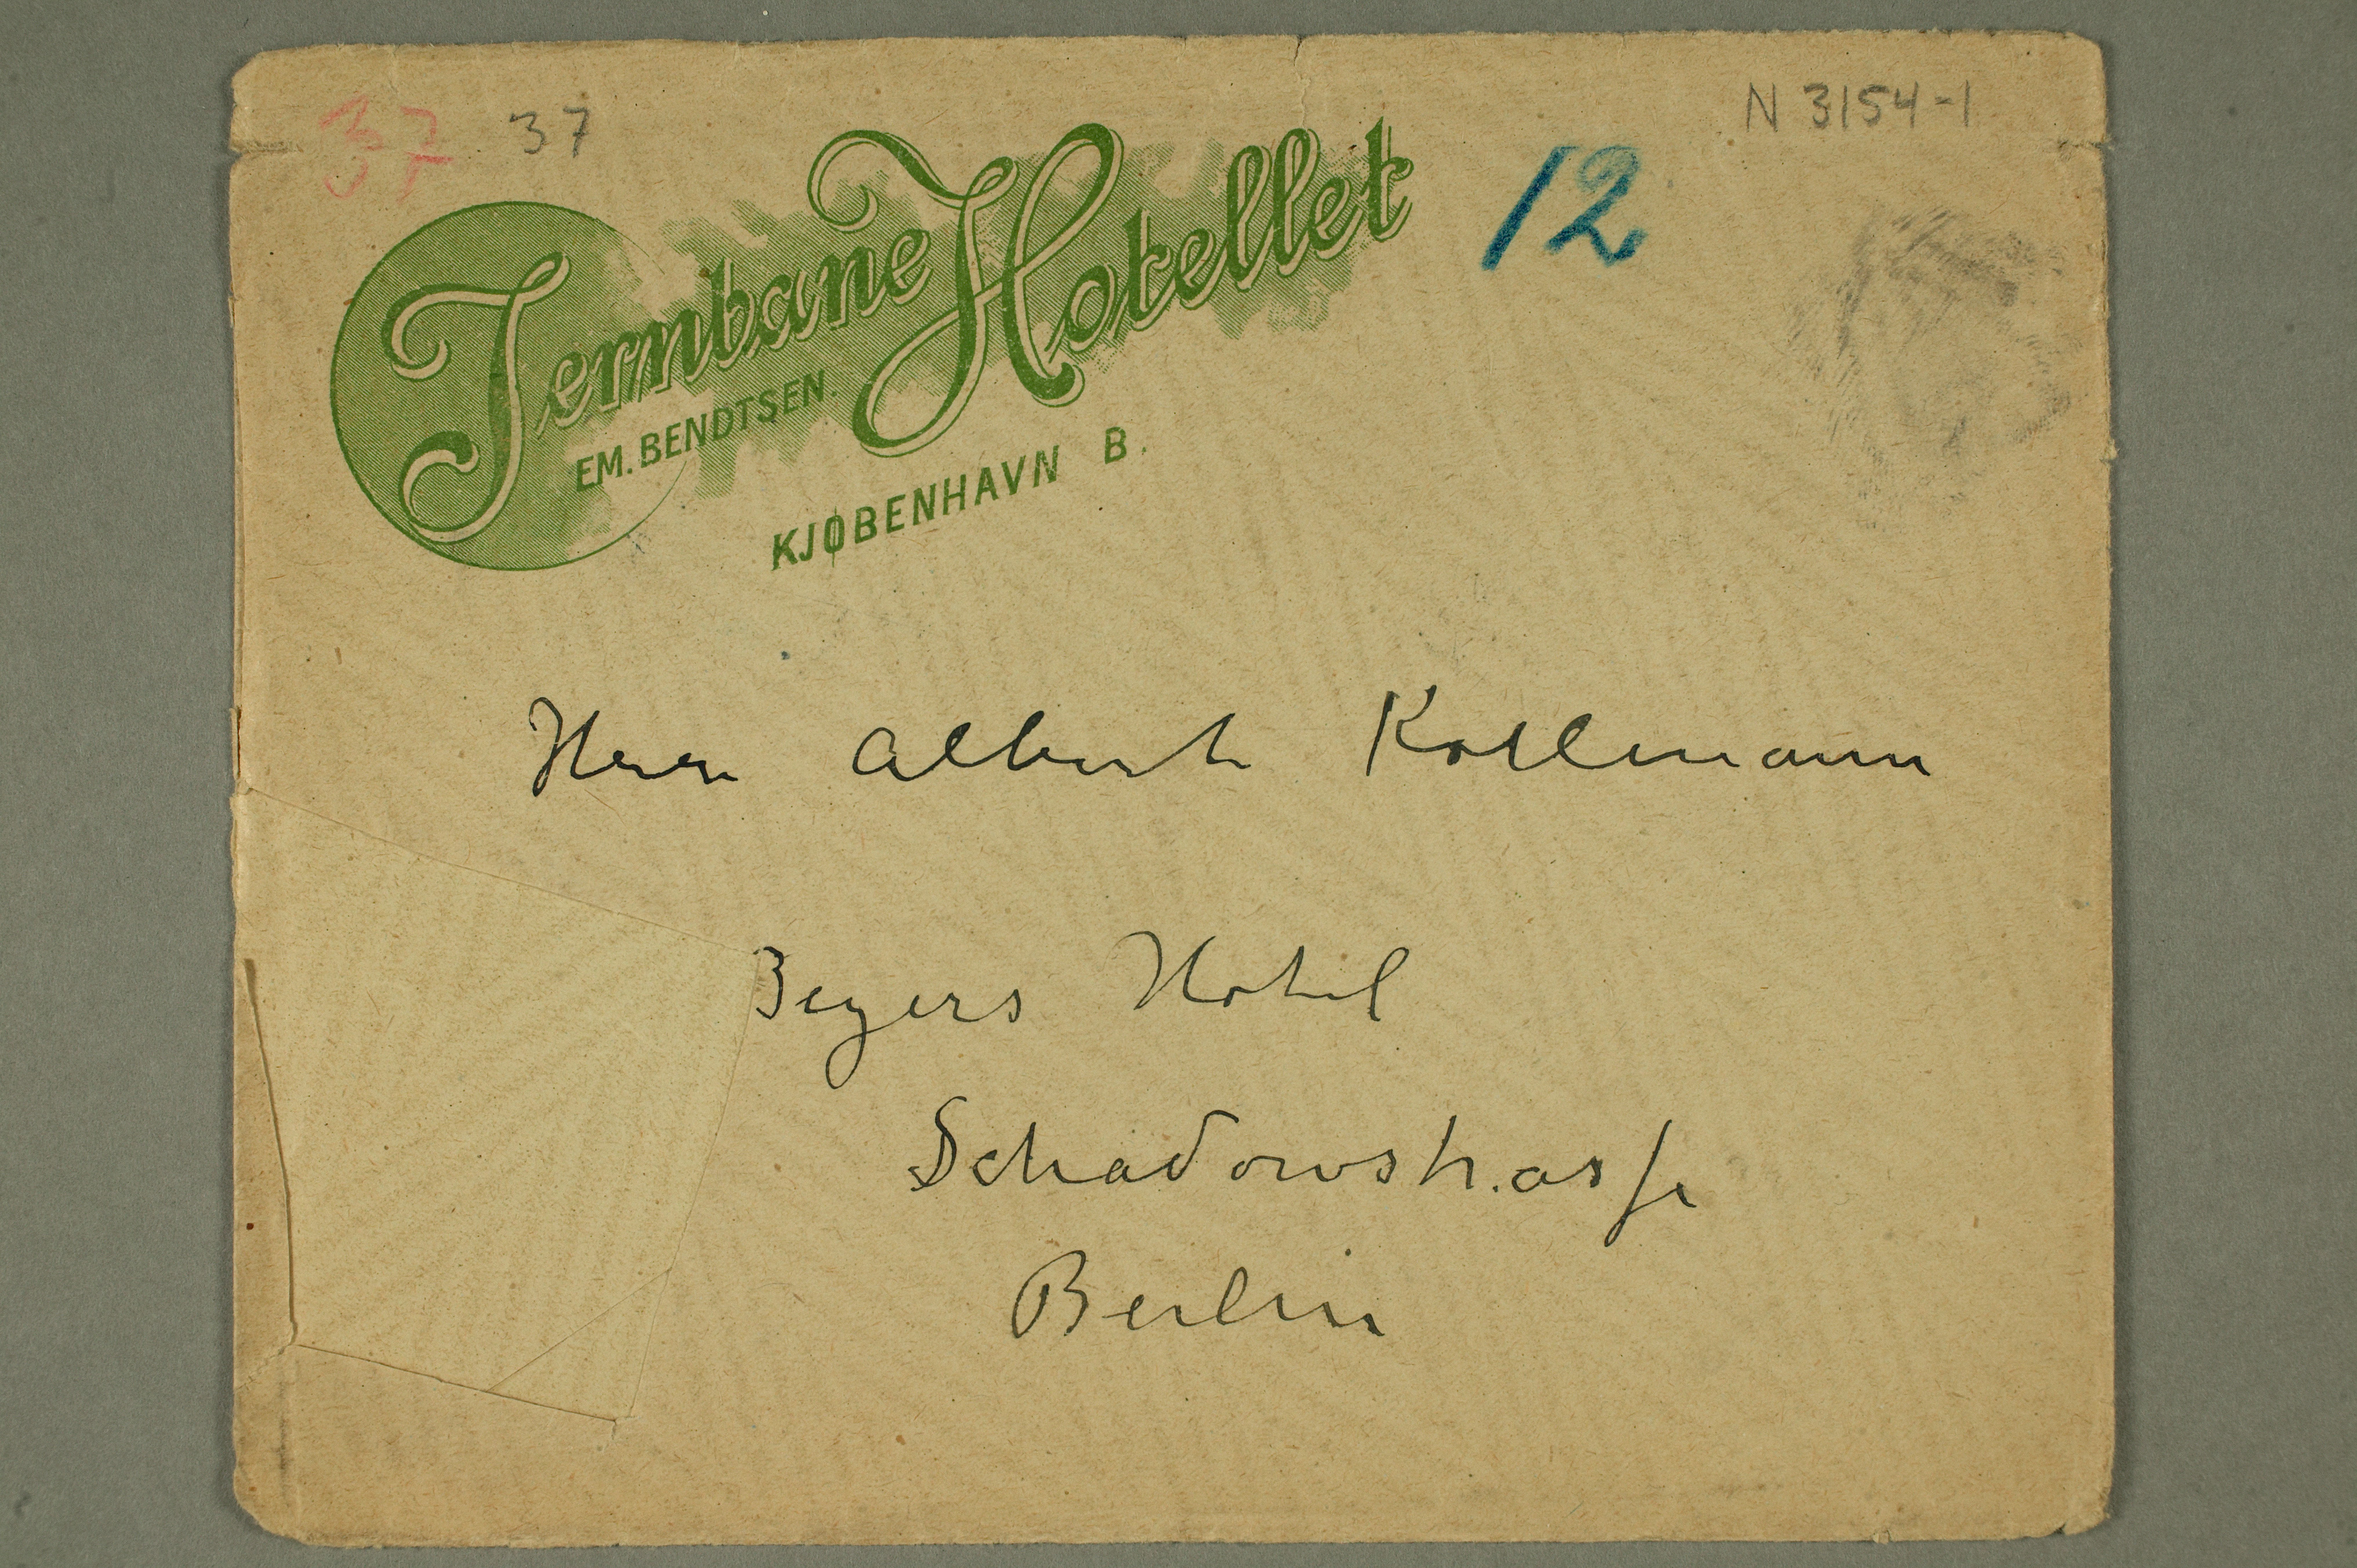 37 37
N 3154-1
12
Jernbane Hotellet
EM. BENDTSEN.
KJØBENHAVN B.
Herrn Albert Kollmann
Beyers Hotel
Schadowstrasse
Berlin